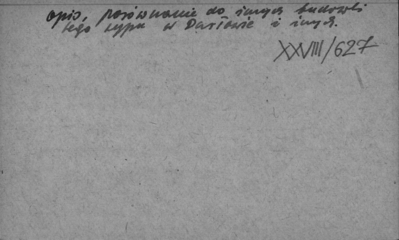 opis, porównanie do innych budowli
tego typu w Darłowie i innych.
XXVIII/627